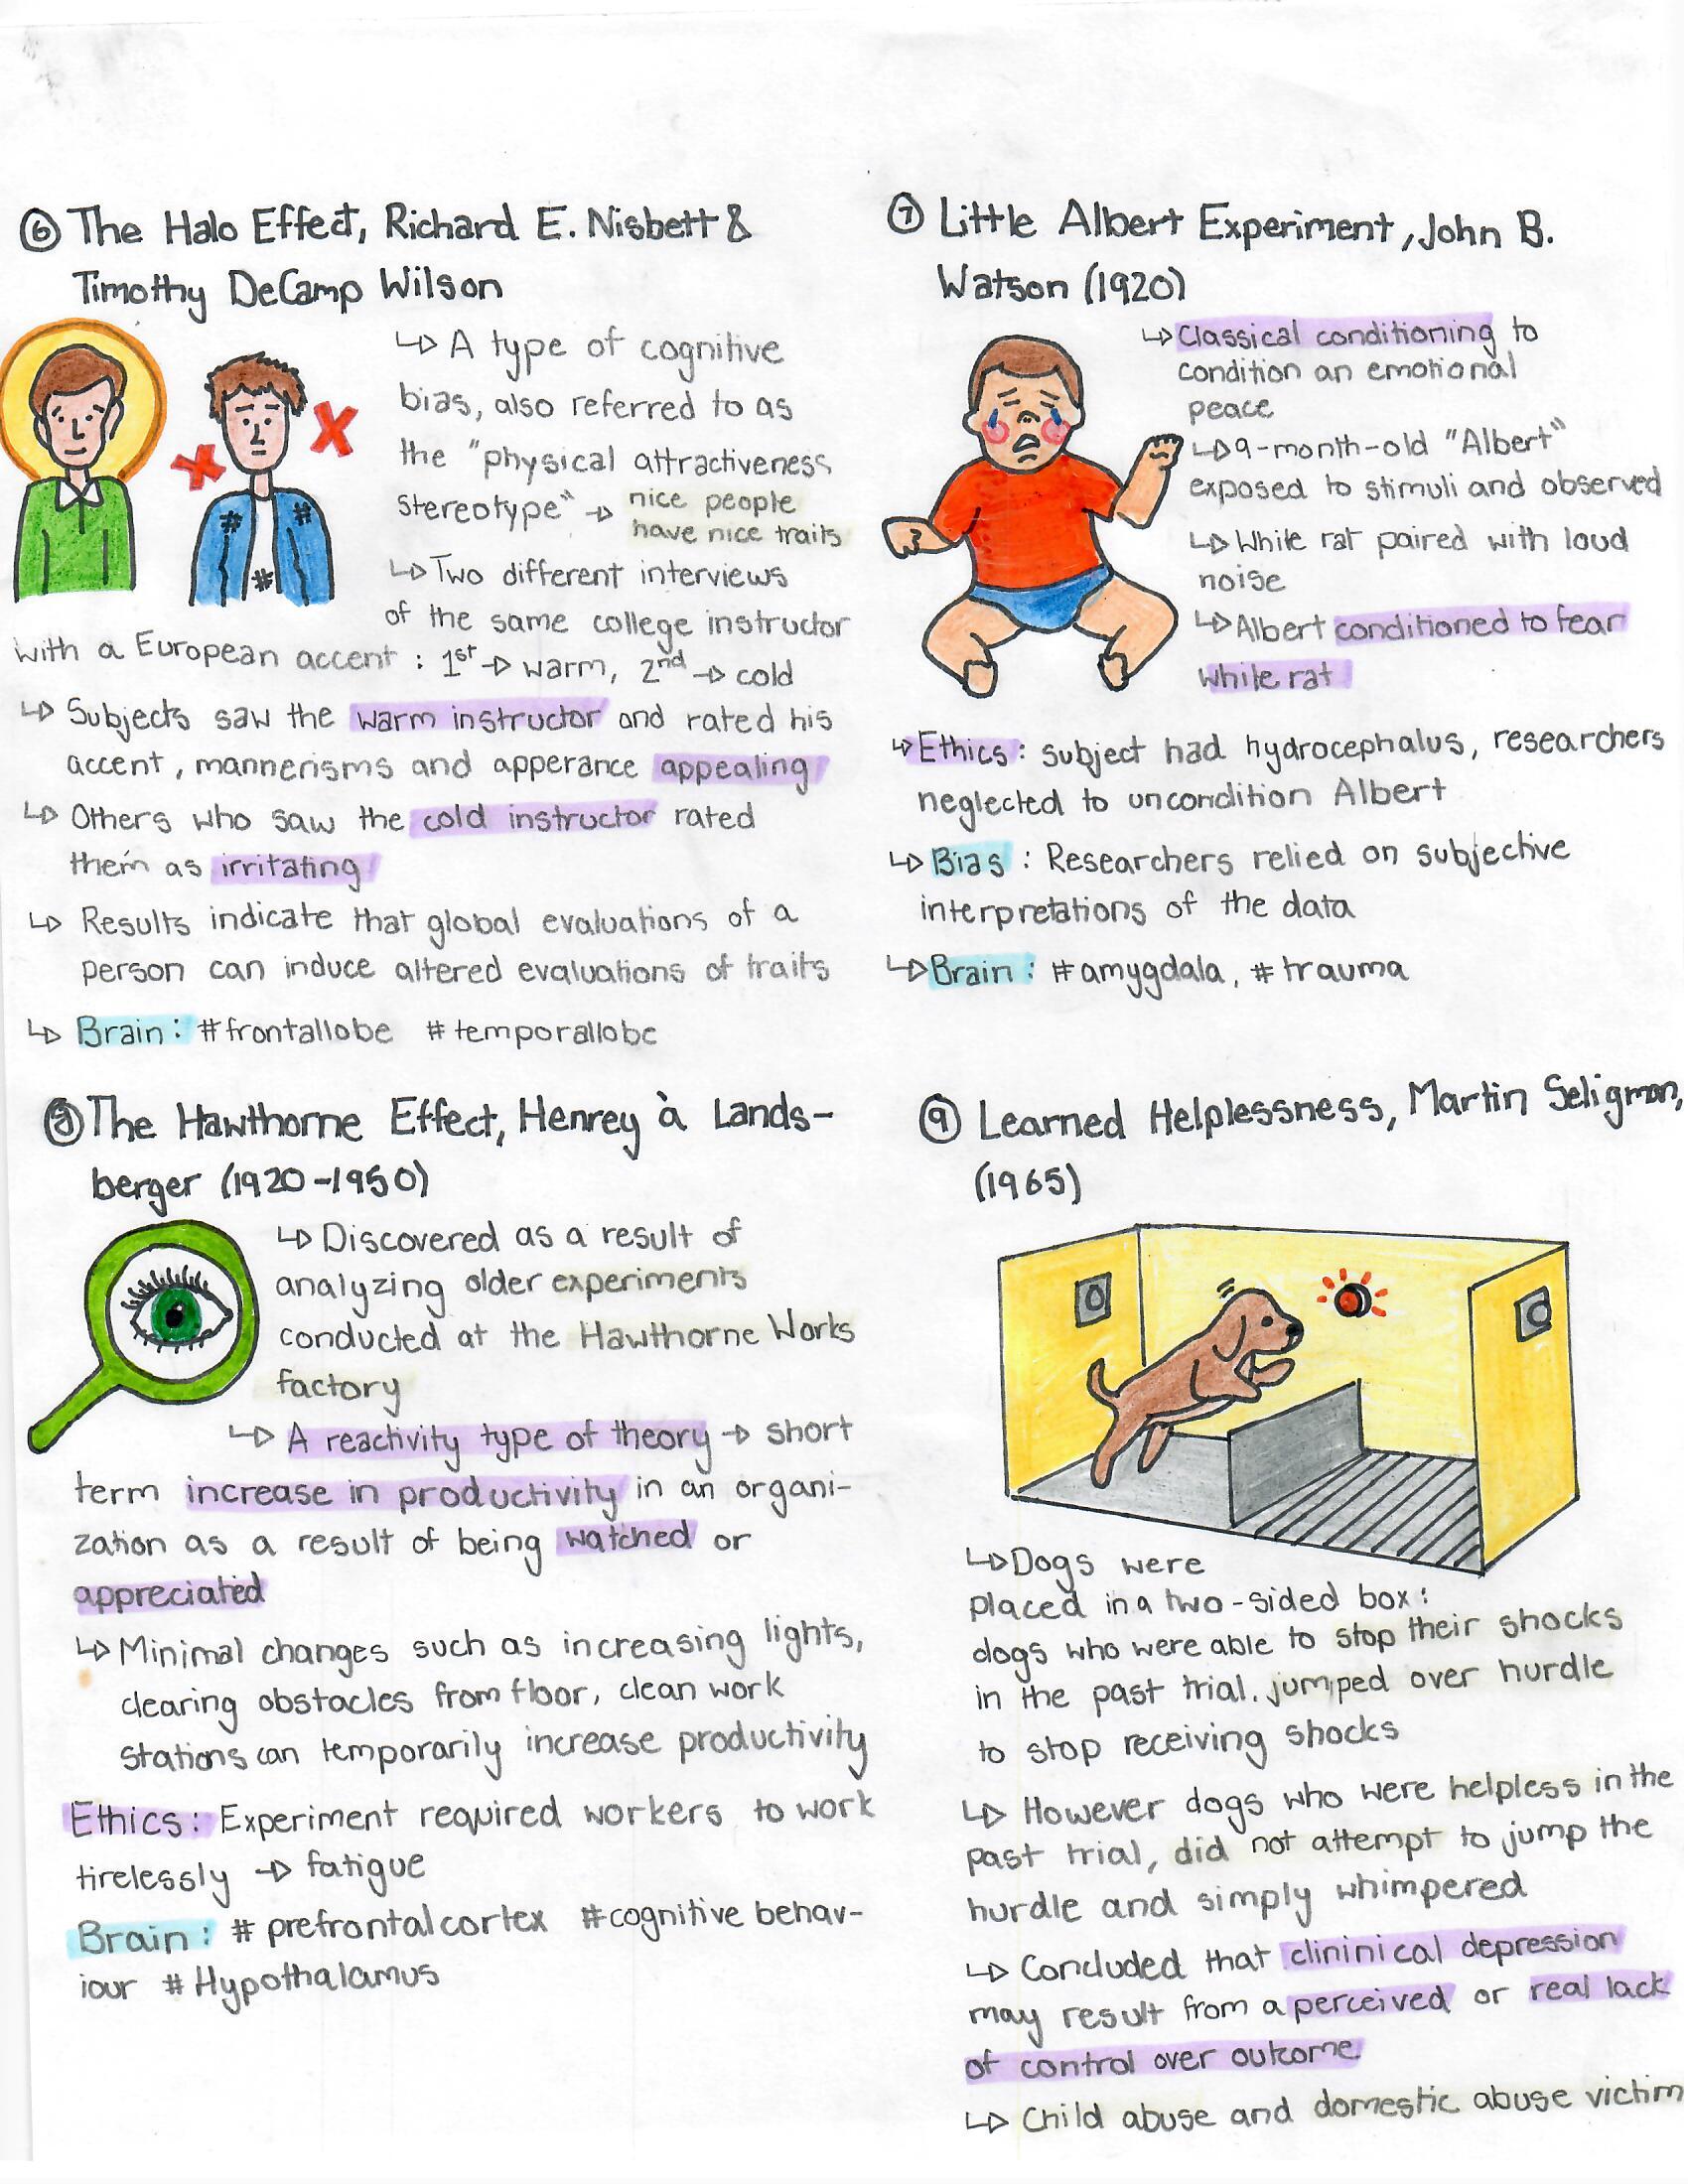 ⑥ The Halo Effect, Richard E. Nisbett &
Timothy DeCamp Wilson
↳ A type of cognitive
bias, also referred to as
the "physical attractiveness
stereotype" → nice people
have nice traits
↳ Two different interviews
of the same college instructor
with a European accent : 1st → warm, 2nd → cold
↳ Subjects saw the warm instructor and rated his
accent, mannerisms and apperance appealing
↳ Others who saw the cold instructor rated
them as irritating
↳ Results indicate that global evaluations of a
person can induce altered evaluations of traits
↳ Brain: #frontallobe #temporallobe
⑦ Little Albert Experiment, John B.
Watson (1920)
↳ Classical conditioning to
condition an emotional
peace
↳ 9-month-old "Albert"
exposed to stimuli and observed
↳ While rat paired with loud
noise
↳ Albert conditioned to fear
while rat
↳ Ethics: subject had hydrocephalus, researchers
neglected to uncondition Albert
↳ Bias: Researchers relied on subjective
interpretations of the data
↳ Brain: #amygdala, #trauma
⑧ The Hawthorne Effect, Henrey à Lands-
berger (1920-1950)
↳ Discovered as a result of
analyzing older experiments
conducted at the Hawthorne Works
factory
↳ A reactivity type of theory → short
term increase in productivity in an organi-
zation as a result of being watched or
appreciated
↳ Minimal changes such as increasing lights,
clearing obstacles from floor, clean work
stations can temporarily increase productivity
Ethics: Experiment required workers to work
tirelessly → fatigue
Brain: #prefrontalcortex #cognitive behav-
iour #Hypothalamus
⑨ Learned Helplessness, Martin Seligman,
(1965)
↳ Dogs were
placed in a two-sided box:
dogs who were able to stop their shocks
in the past trial, jumped over hurdle
to stop receiving shocks
↳ However dogs who were helpless in the
past trial, did not attempt to jump the
hurdle and simply whimpered
↳ Concluded that clininical depression
may result from a perceived or real lack
of control over outcome
↳ Child abuse and domestic abuse victim